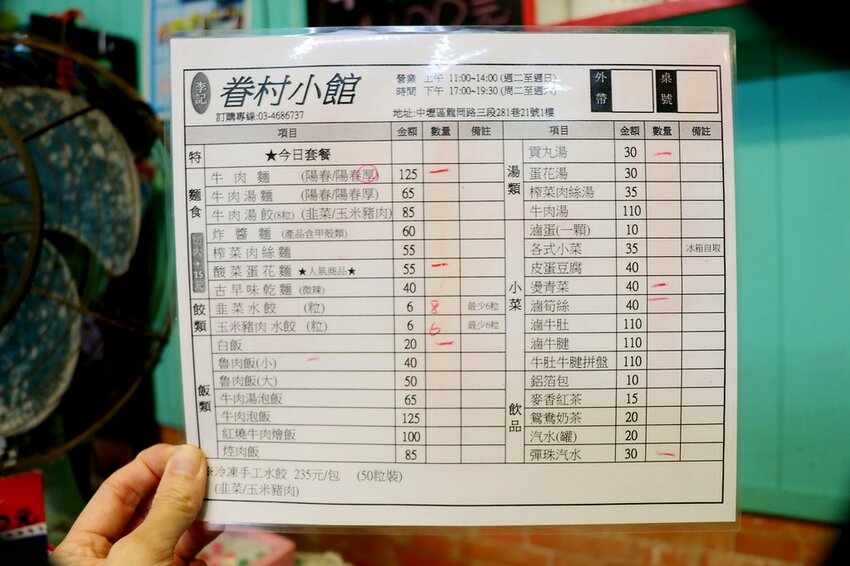 李記 眷村小館
訂購專線:03-4686737
營業 上午 11:00~14:00 (週二至週日)
時間 下午 17:00~19:30 (周二至週六)
地址:中壢區龍岡路三段281巷21號1樓
外帶 桌號
項目 金額 數量 備註
特 ★今日套餐
麵食
牛肉麵 (陽春/陽春厚) 125 一
牛肉湯麵 (陽春/陽春厚) 65
牛肉湯餃(8粒) (韭菜/玉米豬肉) 85
炸醬麵 (產品含甲殼類) 60
榨菜肉絲麵 55
酸菜蛋花麵 ★人氣商品★ 55 一
古早味乾麵 (微辣) 40
餃類
韭菜水餃 (粒) 6 8 最少6粒
玉米豬肉水餃 (粒) 6 6 最少6粒
飯類
白飯 20 一
魯肉飯(小) 一 40
魯肉飯(大) 50
牛肉湯泡飯 65
牛肉泡飯 125
紅燒牛肉燴飯 100
焢肉飯 85
※冷凍手工水餃 235元/包 (50粒裝)
(韭菜/玉米豬肉)
項目 金額 數量 備註
湯類
貢丸湯 30 一
蛋花湯 30
榨菜肉絲湯 35
牛肉湯 110
小菜
滷蛋(一顆) 10
各式小菜 35 冰箱自取
皮蛋豆腐 40
燙青菜 40 一
滷筍絲 40 一
滷牛肚 110
滷牛腱 110
牛肚牛腱拼盤 110
飲品
鋁箔包 10
麥香紅茶 15
鴛鴦奶茶 20
汽水(罐) 20
彈珠汽水 30 一